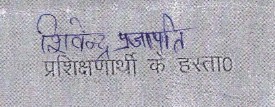 शिवेन्द्र प्रजापति
प्रशिक्षणार्थी के हस्ता०